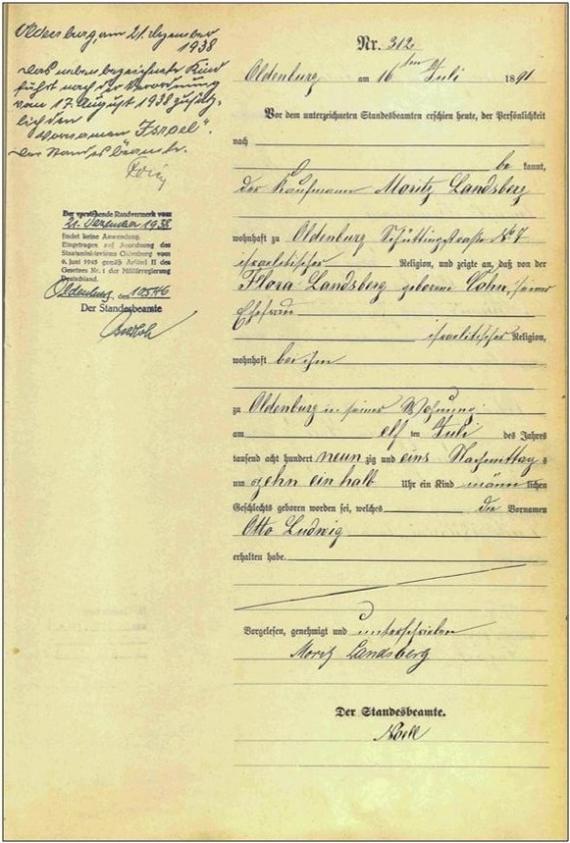 Oldenburg, am 21. Dezember
1938
Das neben bezeichnete Kind
führt nach der Verordnung
vom 17. August 1938 zusätz-
lich den
Vornamen "Israel".
Der Standesbeamte.
Der vorstehende Randvermerk vom
21. Dezember 1938
findet keine Anwendung.
Eingetragen auf Anordnung des
Staatsministeriums Oldenburg vom
6. Juni 1945 gemäß Artikel II des
Gesetzes Nr. 1 der Militärregierung
Deutschland.
Oldenburg, den
Der Standesbeamte
Nr. 312
Oldenburg am 16ten Juli 1891
Vor dem unterzeichneten Standesbeamten erschien heute, der Persönlichkeit
nach
be kannt,
der Kaufmann Moritz Landsberg
wohnhaft zu Oldenburg Schüttingstraße No 7
israelitischer Religion, und zeigte an, daß von der
Flora Landsberg geborene Cohn, seiner
Ehefrau
israelitischer Religion,
wohnhaft bei ihm
zu Oldenburg in seiner Wohnung
am elf ten Juli des Jahres
tausend acht hundert neun zig und eins Nachmittags
um zehn ein halb Uhr ein Kind männ lichen
Geschlechts geboren worden sei, welches die Vornamen
Otto Ludwig
erhalten habe.
Vorgelesen, genehmigt und unterschrieben
Moritz Landsberg
Der Standesbeamte.